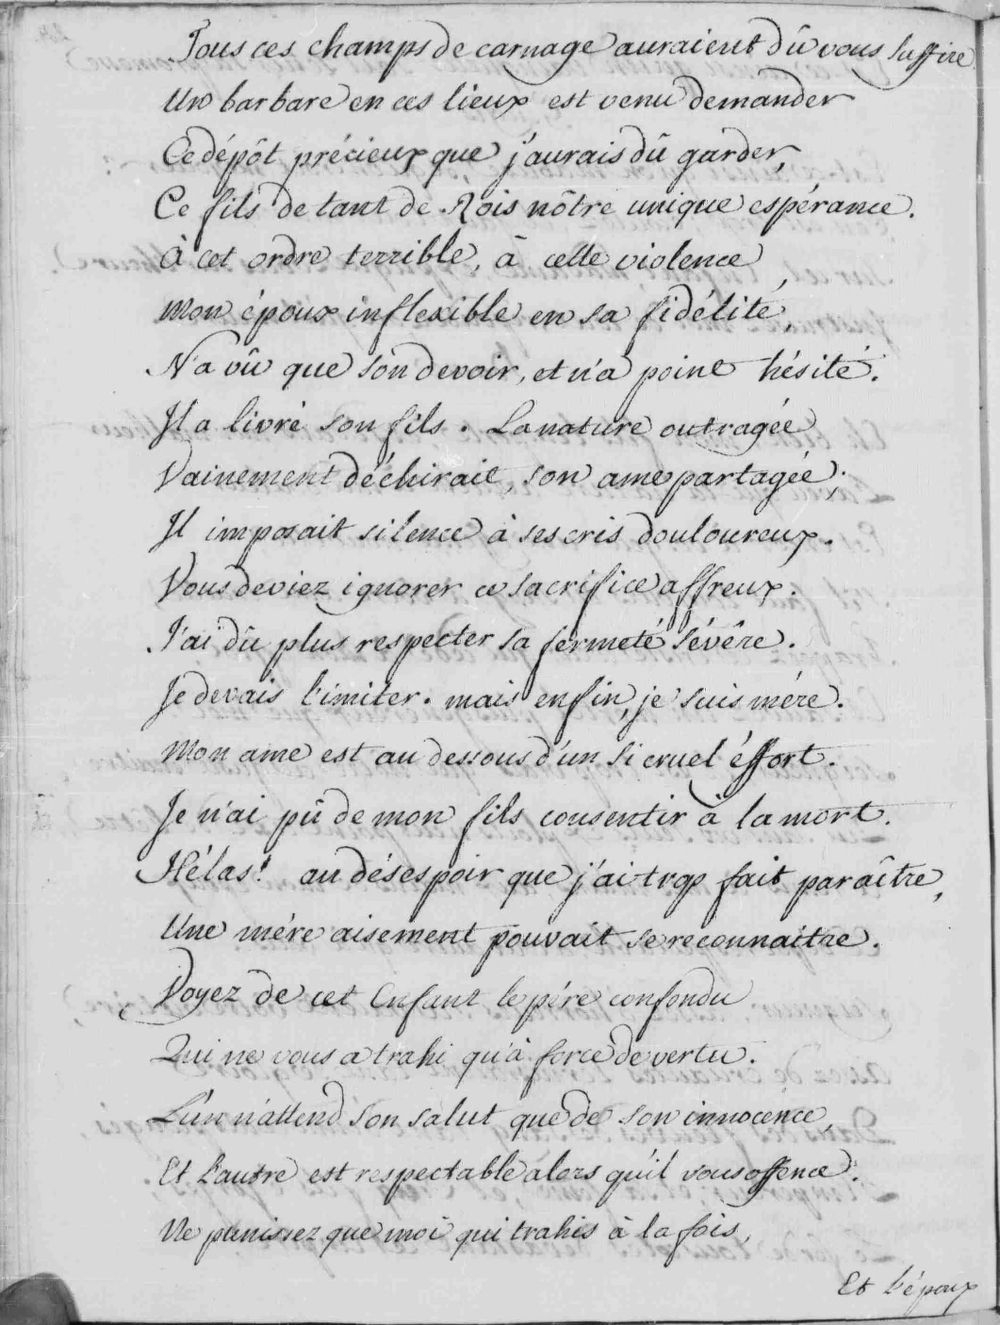 Tous ces champs de carnage auraient dû vous suffire
Un barbare en ces lieux est venu demander
Ce dépôt précieux que j'aurais dû garder,
Ce fils de tant de Rois nôtre unique espérance.
à cet ordre terrible, à cette violence
Mon époux inflexible en sa fidélité,
N'a vû que son devoir, et n'a point hésité.
Il a livré son fils. La nature outragée
Vainement déchirait, son ame partagée;
Il imposait silence à ses cris douloureux.
Vous deviez ignorer ce sacrifice affreux.
J'ai dû plus respecter sa fermeté sévêre.
Je devais l'imiter. mais enfin, je suis mére.
Mon ame est au dessous d'un si cruel éffort.
Je n'ai pû de mon fils consentir à la mort.
Hélas! au désespoir que j'ai trop fait paraître,
Une mére aisement pouvait se reconnaitre.
Voyez de cet Enfant le pére confondu
Qui ne vous a trahi qu'à force de vertu.
L'un n'attend son salut que de son innocence,
Et l'autre est respectable alors qu'il vous offence.
Ne punissez que moi qui trahis à la fois,
Et l'époux